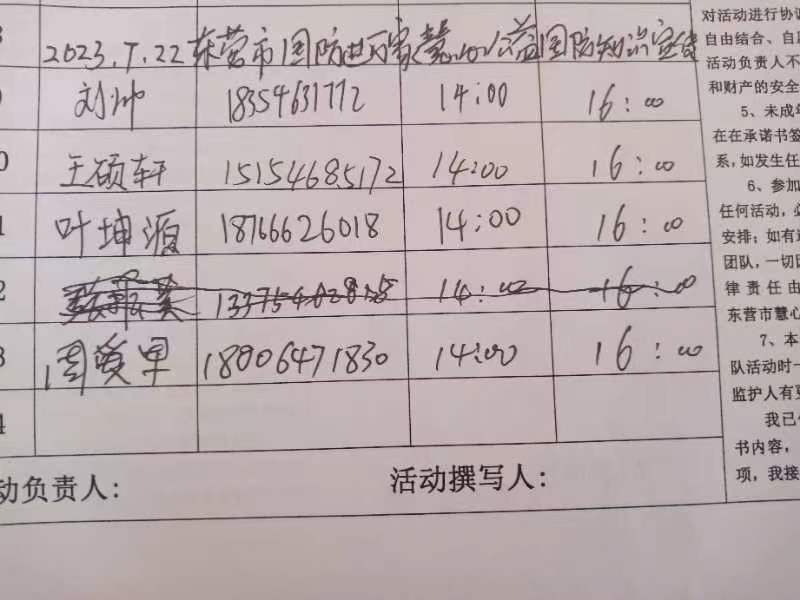 8
2023.7.22 东营市国防进万家慧心公益国防知识宣传
刘帅 18354631772 14:00 16:00
0 王硕轩 15154685172 14:00 16:00
1 叶坤源 18766626018 14:00 16:00
2 14:00 16:00
3 周爱军 18806471830 14:00 16:00
4
动负责人: 活动撰写人:
对活动进行协
自由结合、自
活动负责人不
和财产的安全
5、未成年
在在承诺书签
系,如发生任
6、参加
任何活动,必
安排;如有
团队,一切
律责任由
东营市慧心
7、本
队活动时一
监护人有
我已
书内容,
项,我接